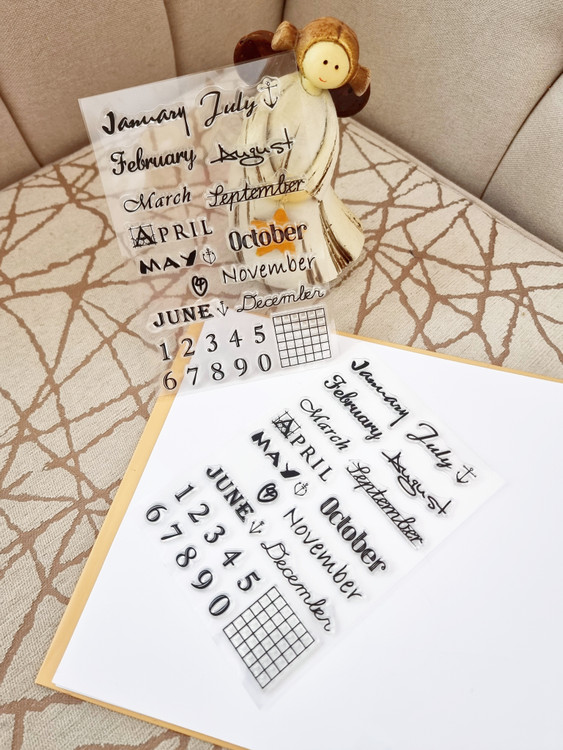 January July
February August
March September
APRIL October
MAY November
JUNE December
1 2 3 4 5
6 7 8 9 0
January July
February August
March September
APRIL October
MAY November
JUNE December
1 2 3 4 5
6 7 8 9 0